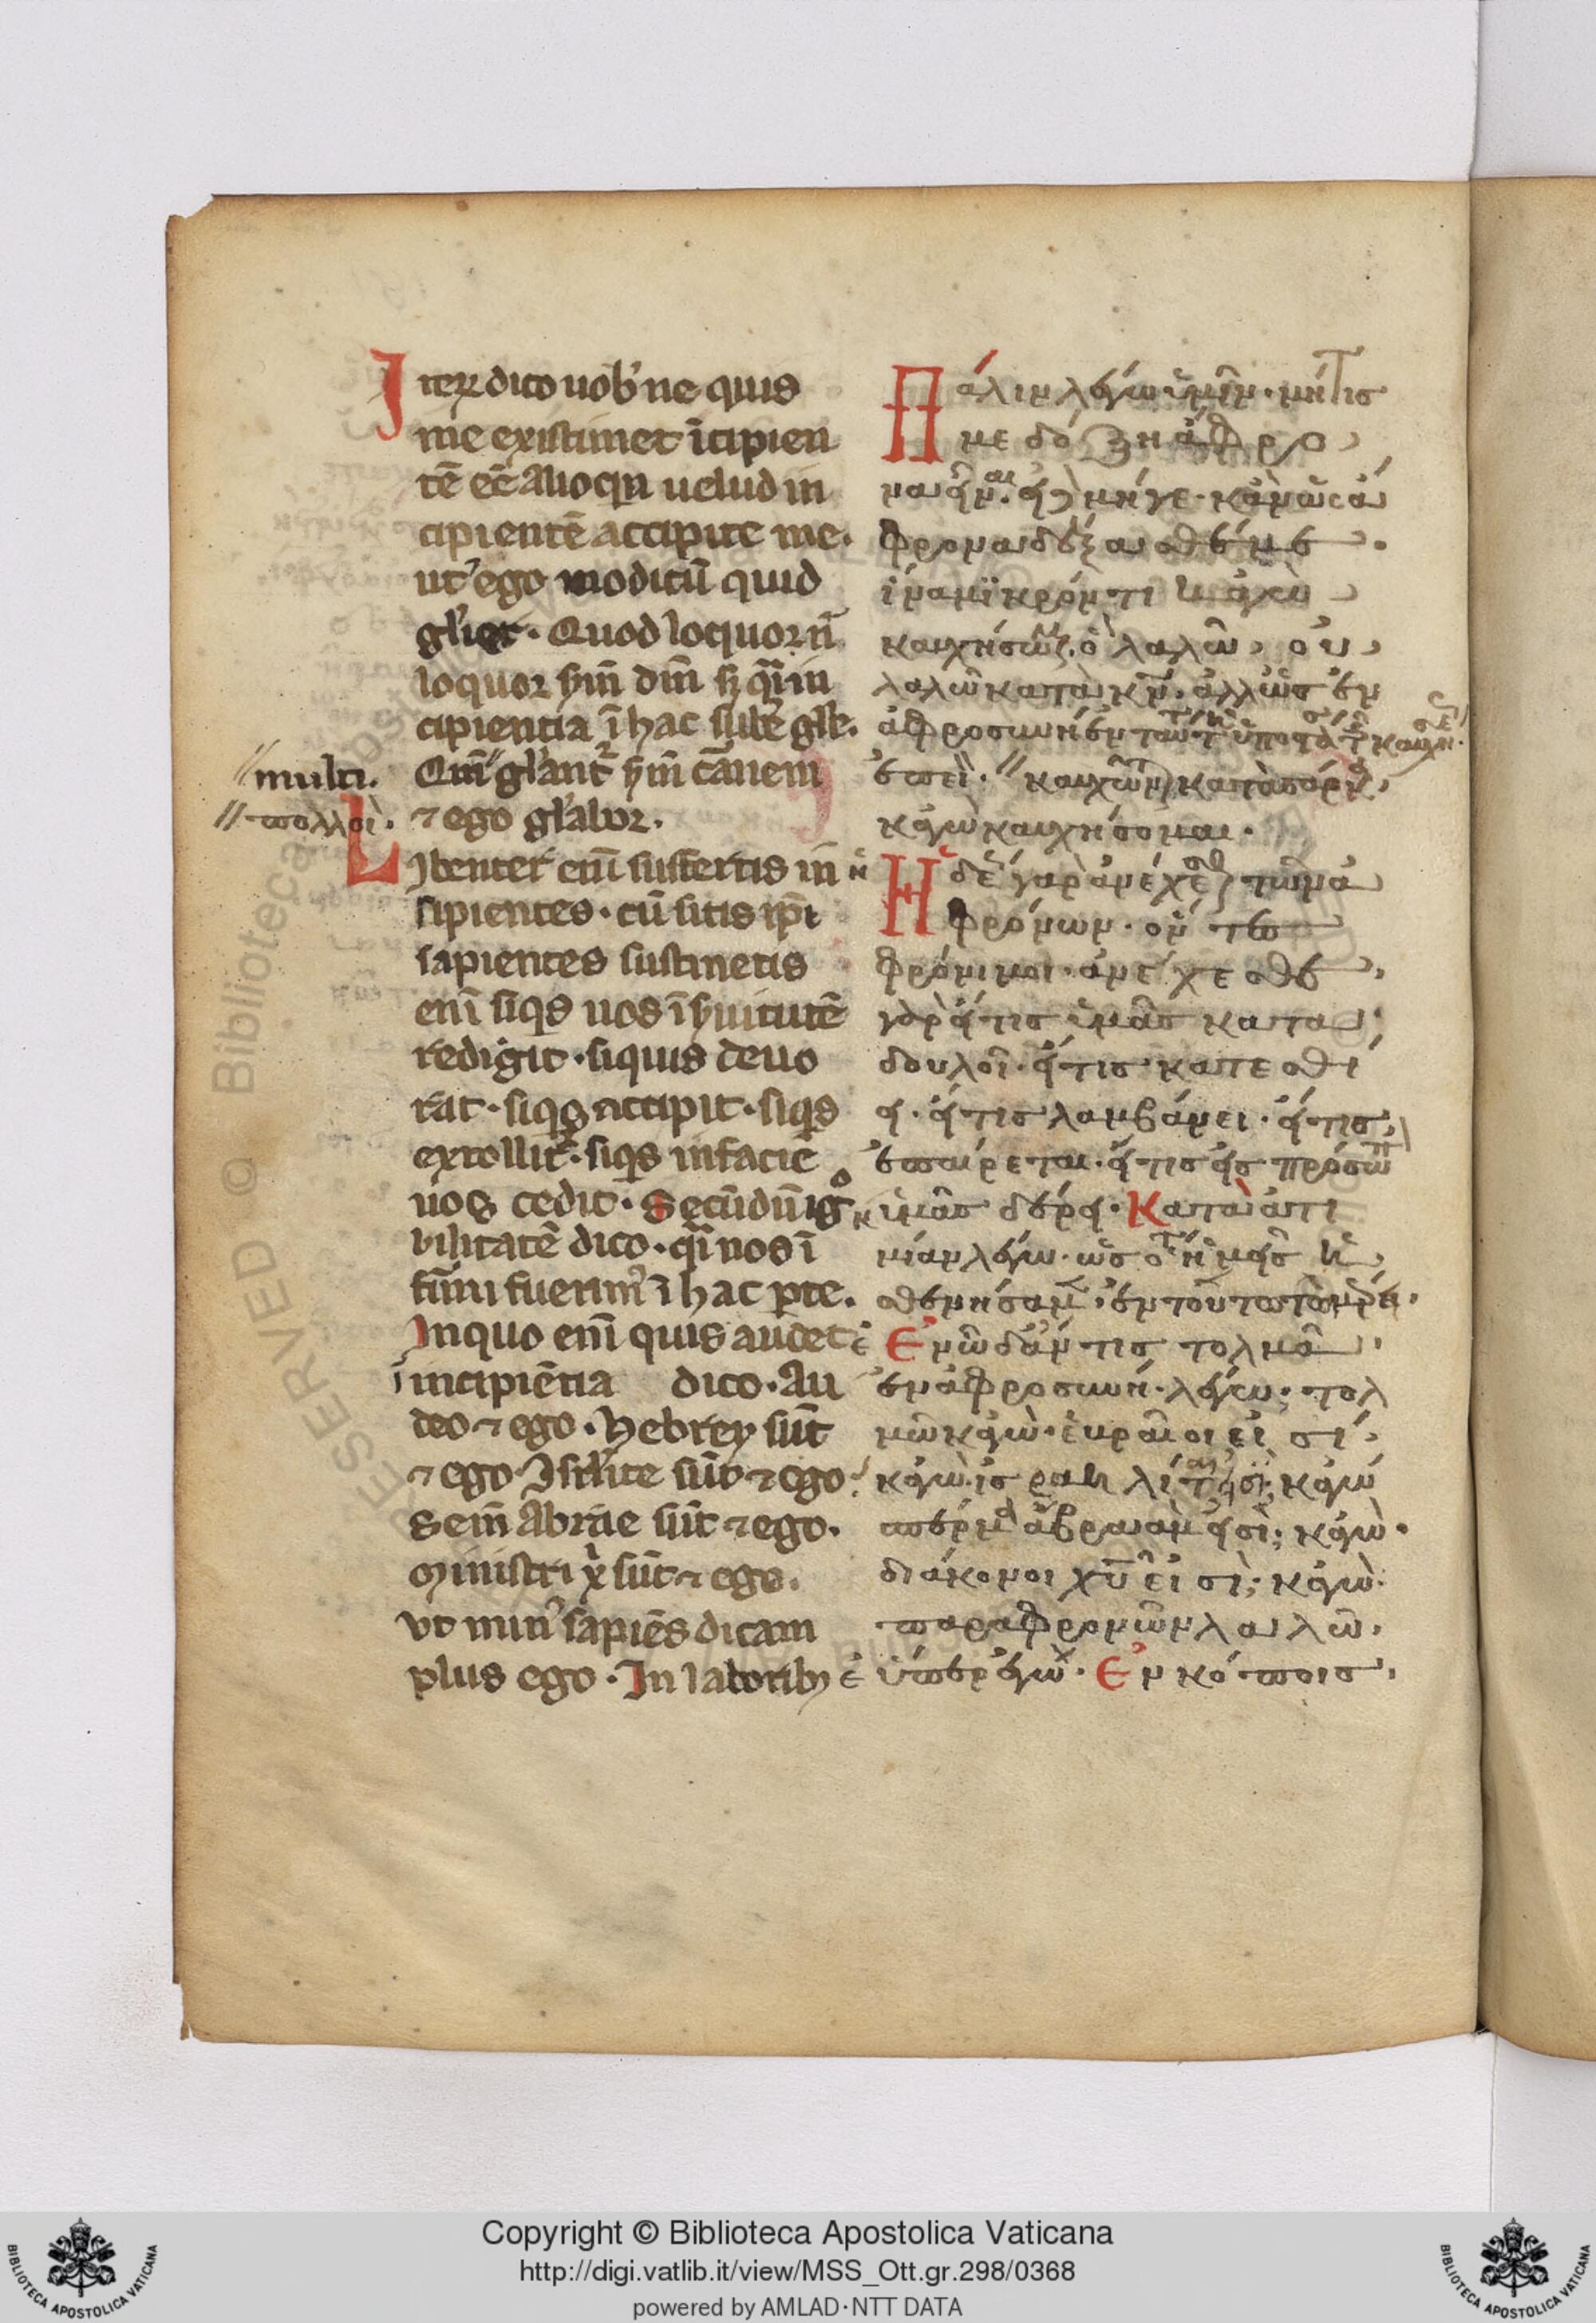 Iteꝝ dico uob' ne quis
me existimet ĩcipien
tē eē Alioqn uelud in
cipientē accipite me.
ut ego modicũ quid
gl'ier. Quod loquor ñ
loquor sm̃ dm̃ sꝫ q̃i in
cipientia ĩ hac sub'e gl'e.
Qm̃ // gl'ant̃ sm̃ cãnem
⁊ ego gl'abor.
Libenter enĩ suffertis in
sipientes. cũ sitis ip̃i
sapientes sustinetis
enĩ siqs uos ĩ suitutē
redigit. siquis deuo
rat. siqs accipit. siqs
extollit̃. siqs in faciē
uos cedit. Secũdũ ig°
bilitatē dico. q̃i nos ĩ
firmi fuerim' ĩ hac pte.
In quo enĩ quis audet
ĩ incipiẽtia dico. Au
deo ⁊ ego. Hebrey sũt
⁊ ego Isrl'ite sũt ⁊ ego
Sem̃ Abrãe sũt ⁊ ego.
Ministri x̃ sũt ⁊ ego.
Vt min' sapiẽs dicam
plus ego. In laborib;
// multi.
// πολλοὶ.
Πάλιν λέγω ὑμῖν. μήτις
με δόξη ἄφρο
να εἶναι. εἰ δὲ μήγε. κἂν ὡς ἄ
φρονα δέξασθέ με.
ἵνα μϊκρόν τι κἀγὼ
καυχήσωμαι. ὃ λαλῶ, οὐ
λαλῶ κατὰ κ̅ν̅. ἀλλ' ὡς ἐν
ἀφροσύνη ἐν ταύτη τῆ ὑποστάσει τῆς καυχήσεως.
ἐπεὶ. // καυχῶνται κατὰ σάρκα,
κἀγὼ καυχήσομαι.
Ἡδέως γὰρ ἀνέχεσθε τῶν ἀ
φρόνων. ὄντες
φρόνιμοι. ἀνέχεσθε
γὰρ εἴ τις ὑμᾶς κατα
δουλοῖ. εἴ τις κατεσθί
ει. εἴ τις λαμβάνει. εἴ τις
ἐπαίρεται. εἴ τις εἰς πρόσωπ
ὑμᾶς δέρει. Κατὰ ἀτι
μίαν λέγω. ὡς ὅτι ἡμεῖς ἠ
σθενήσαμεν. ἐν τούτω τῶ μέρει.
Ἐν ὧ δ' ἄν τις τολμᾶ.
ἐν ἀφροσύνη. λέγω. τολ
μῶ κἀγὼ. ἑβραῖοι εἰσί.
κἀγὼ. ἰσραηλίται εἰσὶ; κἀγώ
σπέρμα ἀβραὰμ εἰσὶ; κἀγὼ.
διάκονοι χ̅υ̅ εἰσὶ; κἀγὼ.
παραφρονῶν λαλῶ.
ὑπὲρ ἐγὼ. Ἐν κόποις,
Copyright © Biblioteca Apostolica Vaticana
http://digi.vatlib.it/view/MSS_Ott.gr.298/0368
powered by AMLAD·NTT DATA